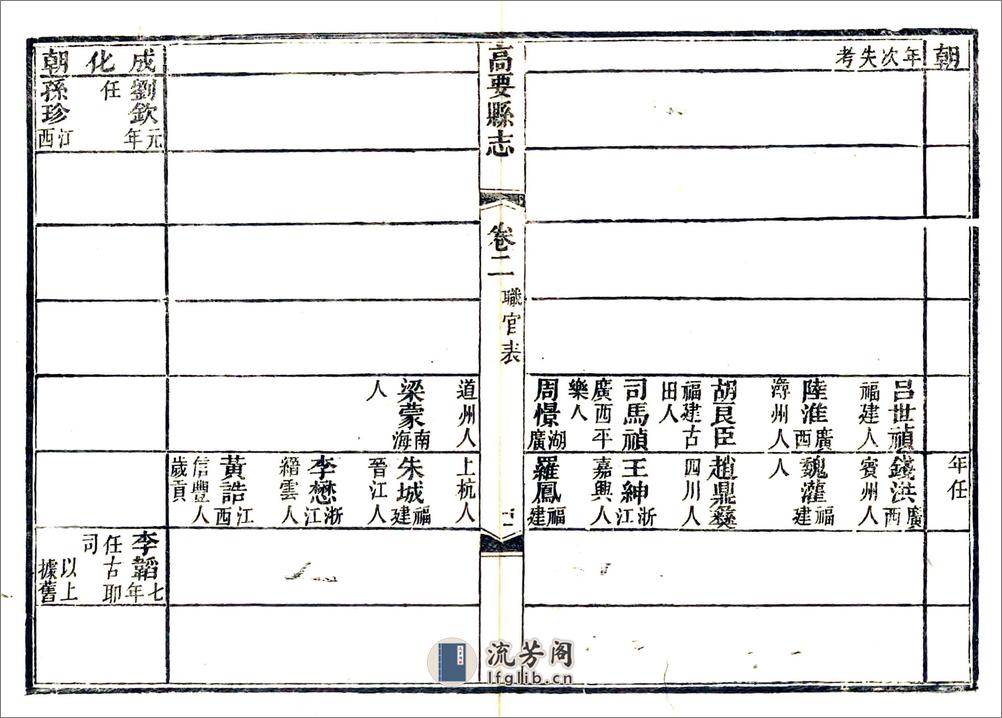 朝
年任
年次失考
呂世禎
福建人
陸淮廣西
潯州人
胡良臣
福建古
田人
司馬禎
廣西平
樂人
周憬湖廣
錢洪廣西
賓州人
魏瀧福建
人
趙鼎彝
四川人
王紳浙江
嘉興人
羅鳳福建
高要縣志
卷二
職官表
十一
道州人
梁蒙南海
人
上杭人
朱城福建
晉江人
李懋浙江
縉雲人
黃誥江西
信豐人
歲貢
成化朝
劉欽元年
任
孫珍江西
李韜七年
任古耶
司
以上
據舊
流芳阁
lfglib.cn